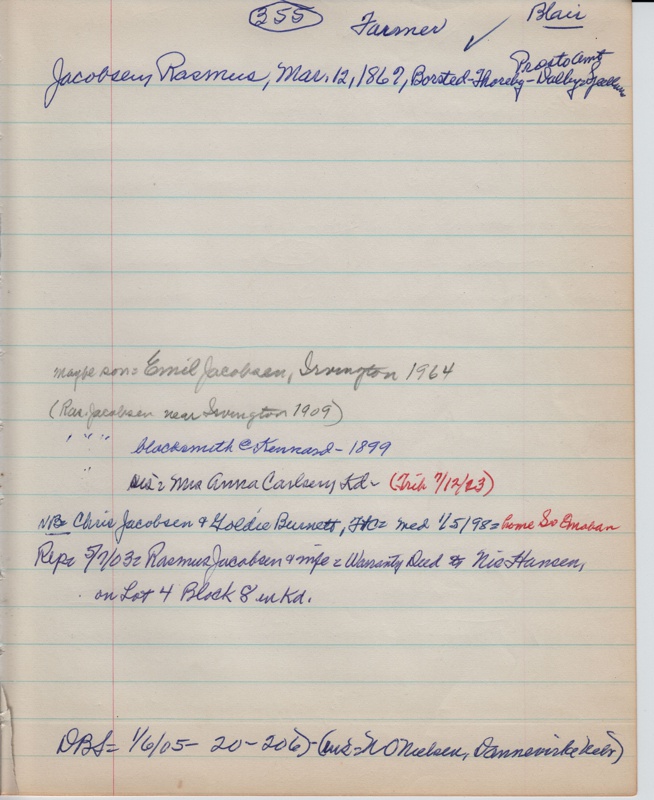 355 Farmer Blair
Præsto Amt
Jacobsen, Rasmus, Mar. 12, 1867, Borsted-Thoreby-Dalby-
maybe son = Emil Jacobsen, Irvington 1964
(Ras. Jacobsen near Irvington 1909)
" " " blacksmith @ Kennard - 1899
" sis = Mrs Anna Carlsen, Kd - (Trib 7/12/23)
NB= Chris Jacobsen & Goldie Burnett, = wed 1/5/98 = home So Omahan
Rep = 5/7/03 = Rasmus Jacobsen & wife = Warranty Deed to Nis Hansen,
on Lot 4 Block 8 in Kd.
DBS = 1/6/05 - 20-206) - N O Nielsen, Dannevirke Nebr)